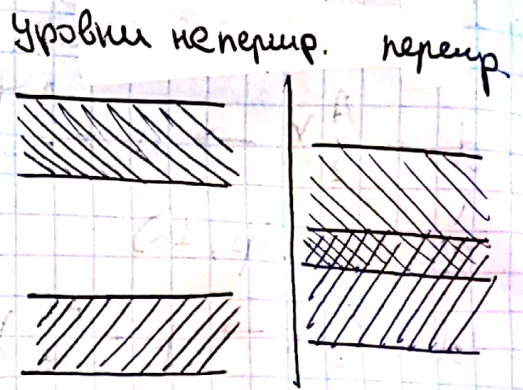 уровни неперикр. перекр.